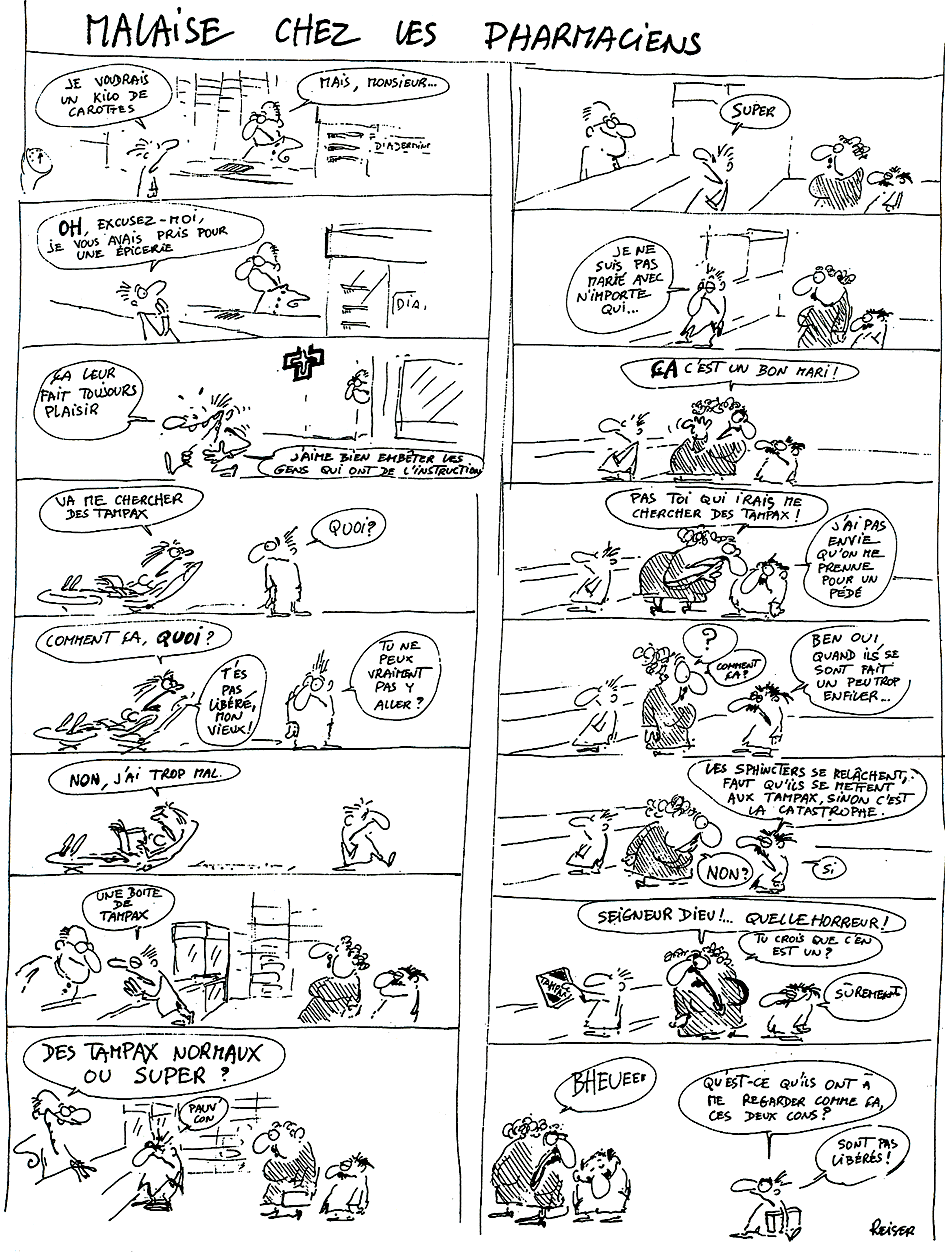 MALAISE CHEZ LES PHARMACIENS
JE VOUDRAIS
UN KILO DE
CAROTTES
MAIS, MONSIEUR...
DIADERMINE
OH, EXCUSEZ-MOI,
JE VOUS AVAIS PRIS POUR
UNE ÉPICERIE
DIA.
ÇA LEUR
FAIT TOUJOURS
PLAISIR
J'AIME BIEN EMBÊTER LES
GENS QUI ONT DE L'INSTRUCTION
VA ME CHERCHER
DES TAMPAX
QUOI?
COMMENT ÇA, QUOI?
T'ES
PAS
LIBÉRÉ,
MON
VIEUX!
TU NE
PEUX
VRAIMENT
PAS Y
ALLER?
NON, J'AI TROP MAL.
UNE BOITE
DE
TAMPAX
DES TAMPAX NORMAUX
OU SUPER?
PAUV'
CON
SUPER
JE NE
SUIS PAS
MARIÉ AVEC
N'IMPORTE
QUI...
ÇA C'EST UN BON MARI!
PAS TOI QUI IRAIS ME
CHERCHER DES TAMPAX!
J'AI PAS
ENVIE
QU'ON ME
PRENNE
POUR UN
PÉDÉ
?
COMMENT
ÇA?
BEN OUI,
QUAND ILS SE
SONT FAIT
UN PEU TROP
ENFILER...
LES SPHINCTERS SE RELÂCHENT,
FAUT QU'ILS SE METTENT
AUX TAMPAX, SINON C'EST
LA CATASTROPHE.
NON?
SI
SEIGNEUR DIEU!... QUELLE HORREUR!
TU CROIS QUE C'EN
EST UN?
TAMPAX
SÛREMENT
BHEUEEE
QU'EST-CE QU'ILS ONT À
ME REGARDER COMME ÇA,
CES DEUX CONS?
SONT PAS
LIBÉRÉS!
REISER